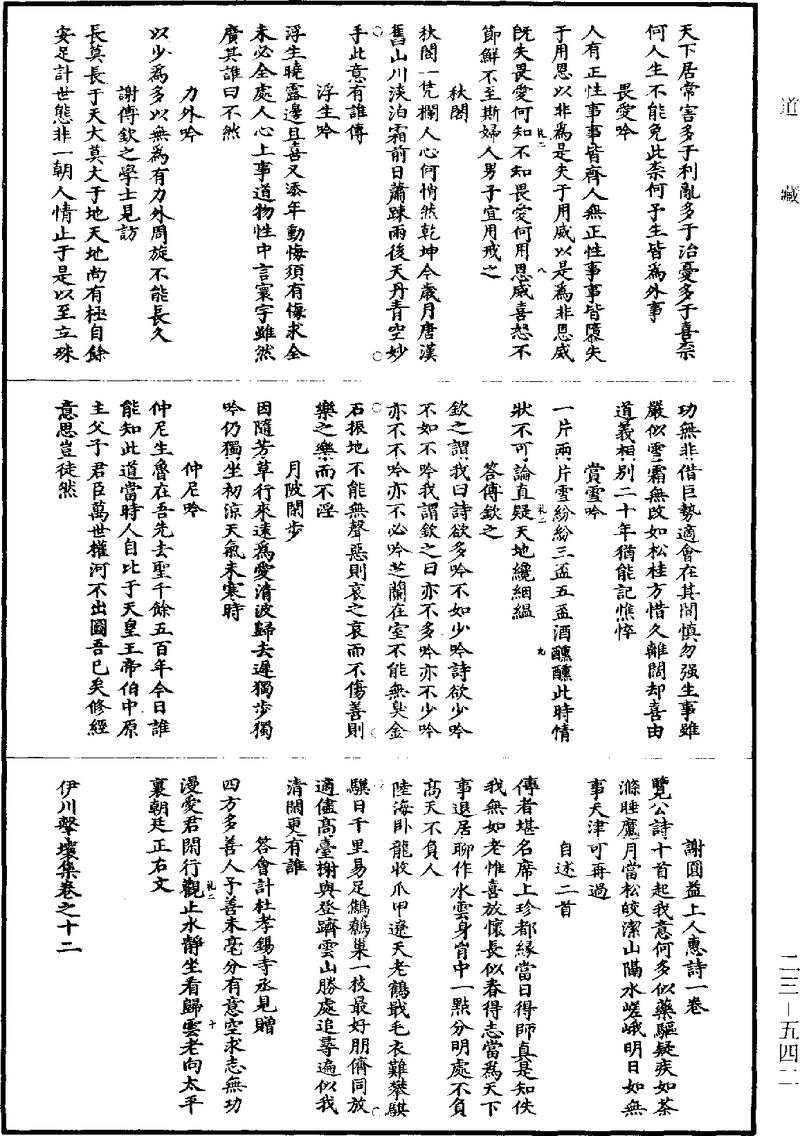 道藏
天下居常害多于利亂多于治憂多于喜柰
何人生不能免此柰何予生皆為外事
畏愛吟
人有正性事事皆齊人無正性事事皆隳失
于用恩以非為是失于用威以是為非恩威
既失畏愛何知不知畏愛何用恩威喜怒不
節鮮不至斯婦人男子宜用戒之
秋閣
秋閣一凭欄人心何悄然乾坤今歲月唐漢
舊山川淡泊霜前日蕭踈雨後天丹青空妙
手此意有誰傳
浮生吟
浮生曉露邊且喜又添年動悔須有悔求全
未必全處人心上事道物性中言寰宇雖然
廣其誰曰不然
力外吟
以少為多以無為有力外周旋不能長久
謝傅欽之學士見訪
長莫長于天大莫大于地天地尚有極自餘
安足計世態非一朝人情止于是以至立殊
功無非借巨勢適會在其間慎勿强生事雖
嚴似雪霜無改如松桂方惜久離闊却喜由
道義相別二十年猶能記憔悴
賞雪吟
一片兩片雪紛紛三盃五盃酒醺醺此時情
狀不可論直疑天地纔絪緼
答傅欽之
欽之謂我曰詩欲多吟不如少吟詩欲少吟
不如不吟我謂欽之曰亦不多吟亦不少吟
亦不不吟亦不必吟芝蘭在室不能無臭金
石振地不能無聲惡則哀之哀而不傷善則
樂之樂而不淫
月陂閑步
因隨芳草行來遠為愛清波歸去遲獨步獨
吟仍獨坐初涼天氣未寒時
仲尼吟
仲尼生魯在吾先去聖千餘五百年今日誰
能知此道當時人自比于天皇王帝伯中原
主父子君臣萬世權河不出圖吾已矣修經
意思豈徒然
謝圓益上人惠詩一卷
覽公詩十首起我意何多似藥驅疑疾如茶
滌睡魔月當松皎潔山隔水嵯峨明日如無
事天津可再過
自述二首
傳者堪名席上珍都緣當日得師真是知佚
我無如老惟喜放懷長似春得志當為天下
事退居聊作水雲身胷中一點分明處不負
高天不負人
陸海臥龍收爪甲遼天老鶴戢毛衣難攀騏
驥日千里易足鷦鷯巢一枝最好朋儕同放
適儘高臺榭與登躋雲山勝處追尋遍似我
清閑更有誰
答會計杜孝錫寺丞見贈
四方多善人予善未毫分有意空求志無功
漫愛君閑行觀止水靜坐看歸雲老向太平
裏朝廷正右文
伊川擊壤集卷之十二
二三－五四二